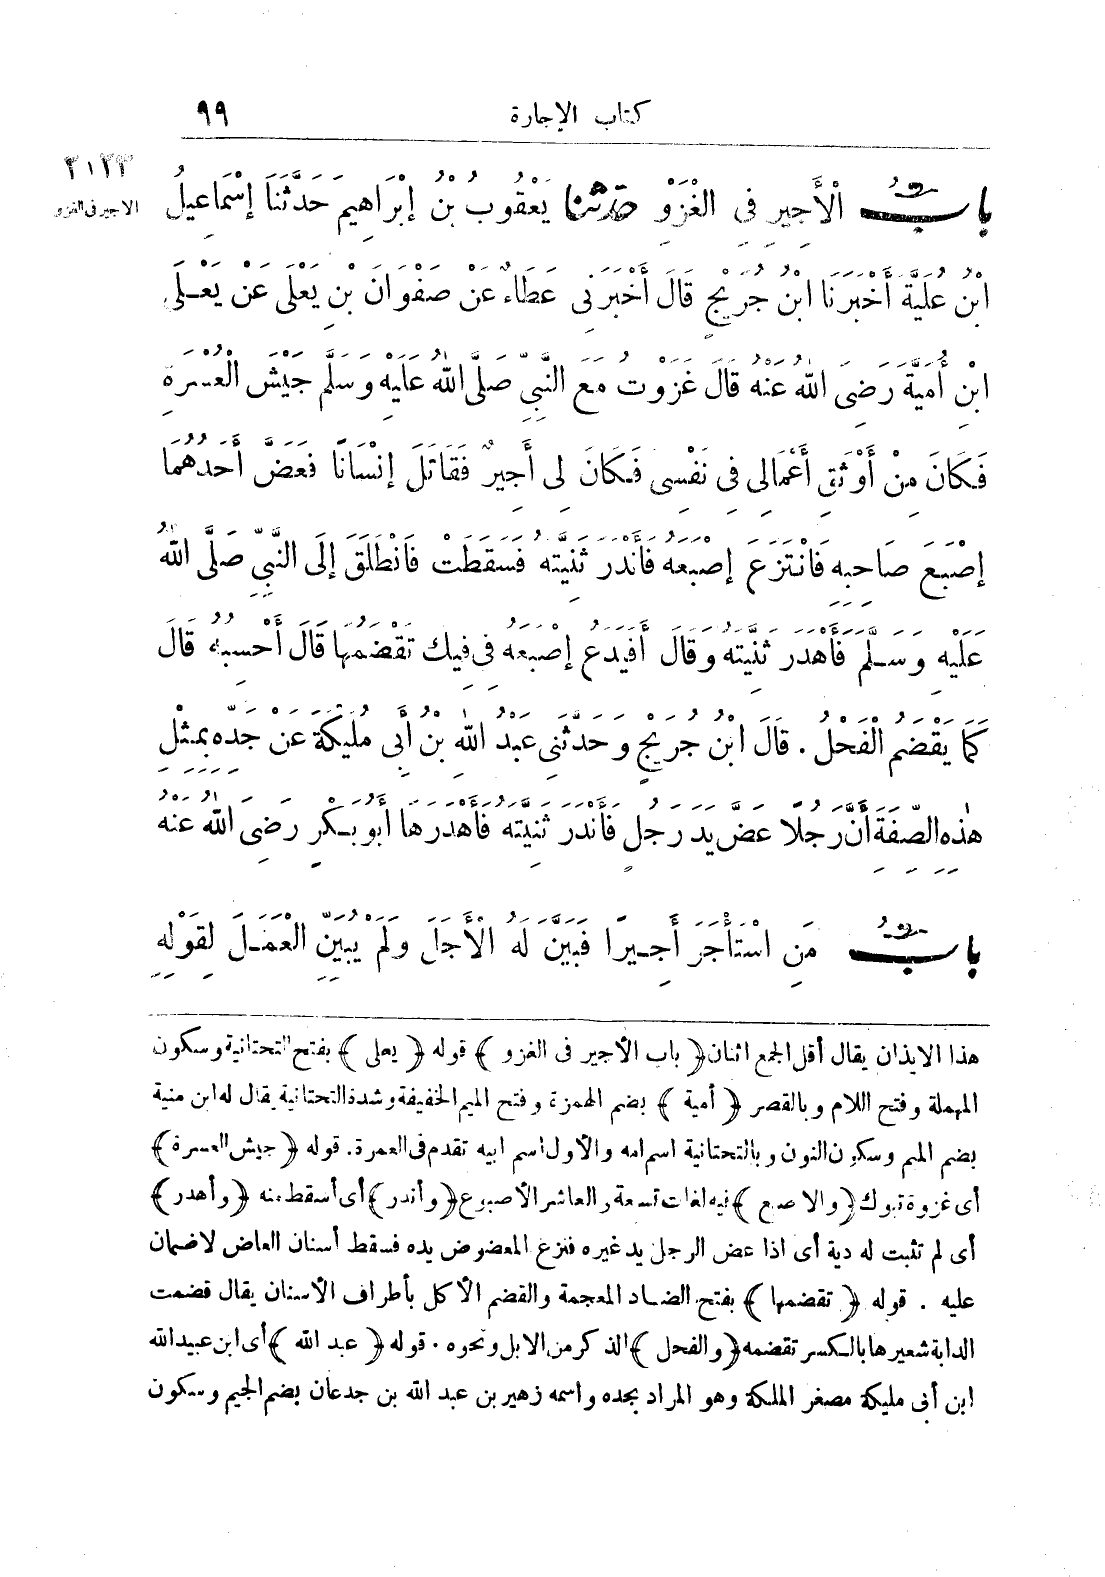 كتاب الإجارة ٩٩
٢١٢٣
الاجير فى الغزو
بابُ الْأَجِيرِ فِي الْغَزْوِ حدثنا يَعْقُوبُ بْنُ إِبْرَاهِيمَ حَدَّثَنَا إِسْمَاعِيلُ
ابْنُ عُلَيَّةَ أَخْبَرَنَا ابْنُ جُرَيْجٍ قَالَ أَخْبَرَنِي عَطَاءٌ عَنْ صَفْوَانَ بْنِ يَعْلَى عَنْ يَعْلَى
ابْنِ أُمَيَّةَ رَضِيَ اللهُ عَنْهُ قَالَ غَزَوْتُ مَعَ النَّبِيِّ صَلَّى اللهُ عَلَيْهِ وَسَلَّمَ جَيْشَ الْعُسْرَةِ
فَكَانَ مِنْ أَوْثَقِ أَعْمَالِي فِي نَفْسِي فَكَانَ لِي أَجِيرٌ فَقَاتَلَ إِنْسَانًا فَعَضَّ أَحَدُهُمَا
إِصْبَعَ صَاحِبِهِ فَانْتَزَعَ إِصْبَعَهُ فَأَنْدَرَ ثَنِيَّتَهُ فَسَقَطَتْ فَانْطَلَقَ إِلَى النَّبِيِّ صَلَّى اللهُ
عَلَيْهِ وَسَلَّمَ فَأَهْدَرَ ثَنِيَّتَهُ وَقَالَ أَفَيَدَعُ إِصْبَعَهُ فِي فِيكَ تَقْضَمُهَا قَالَ أَحْسِبُهُ قَالَ
كَمَا يَقْضَمُ الْفَحْلُ . قَالَ ابْنُ جُرَيْجٍ وَحَدَّثَنِي عَبْدُ اللهِ بْنُ أَبِي مُلَيْكَةَ عَنْ جَدِّهِ بِمِثْلِ
هٰذِهِ الصِّفَةِ أَنَّ رَجُلًا عَضَّ يَدَ رَجُلٍ فَأَنْدَرَ ثَنِيَّتَهُ فَأَهْدَرَهَا أَبُو بَكْرٍ رَضِيَ اللهُ عَنْهُ
بابُ مَنِ اسْتَأْجَرَ أَجِيرًا فَبَيَّنَ لَهُ الْأَجَلَ وَلَمْ يُبَيِّنِ الْعَمَلَ لِقَوْلِهِ
هذا الايذان يقال أقل الجمع اثنان (باب الأجير فى الغزو) قوله (يعلى) بفتح التحتانية وسكون
المهملة وفتح اللام وبالقصر (أمية) بضم الهمزة وفتح الميم الخفيفة وشدة التحتانية يقال له ابن منية
بضم الميم وسكون النون وبالتحتانية اسم امه والأول اسم ابيه تقدم فى العمرة. قوله (جيش العسرة)
أى غزوة تبوك (والاصبع) فيه لغات تسعة والعاشر الأصبوع (وأندر) أى أسقط منه (وأهدر)
أى لم تثبت له دية أى اذا عض الرجل يد غيره فنزع المعضوض يده فسقط أسنان العاض لا ضمان
عليه . قوله (تقضمها) بفتح الضاد المعجمة والقضم الأكل بأطراف الأسنان يقال قضمت
الدابة شعيرها بالكسر تقضمه (والفحل) الذكر من الابل ونحوه. قوله (عبد الله) أى ابن عبيد الله
ابن أبى مليكة مصغر الملكة وهو المراد بجده واسمه زهير بن عبد الله بن جدعان بضم الجيم وسكون